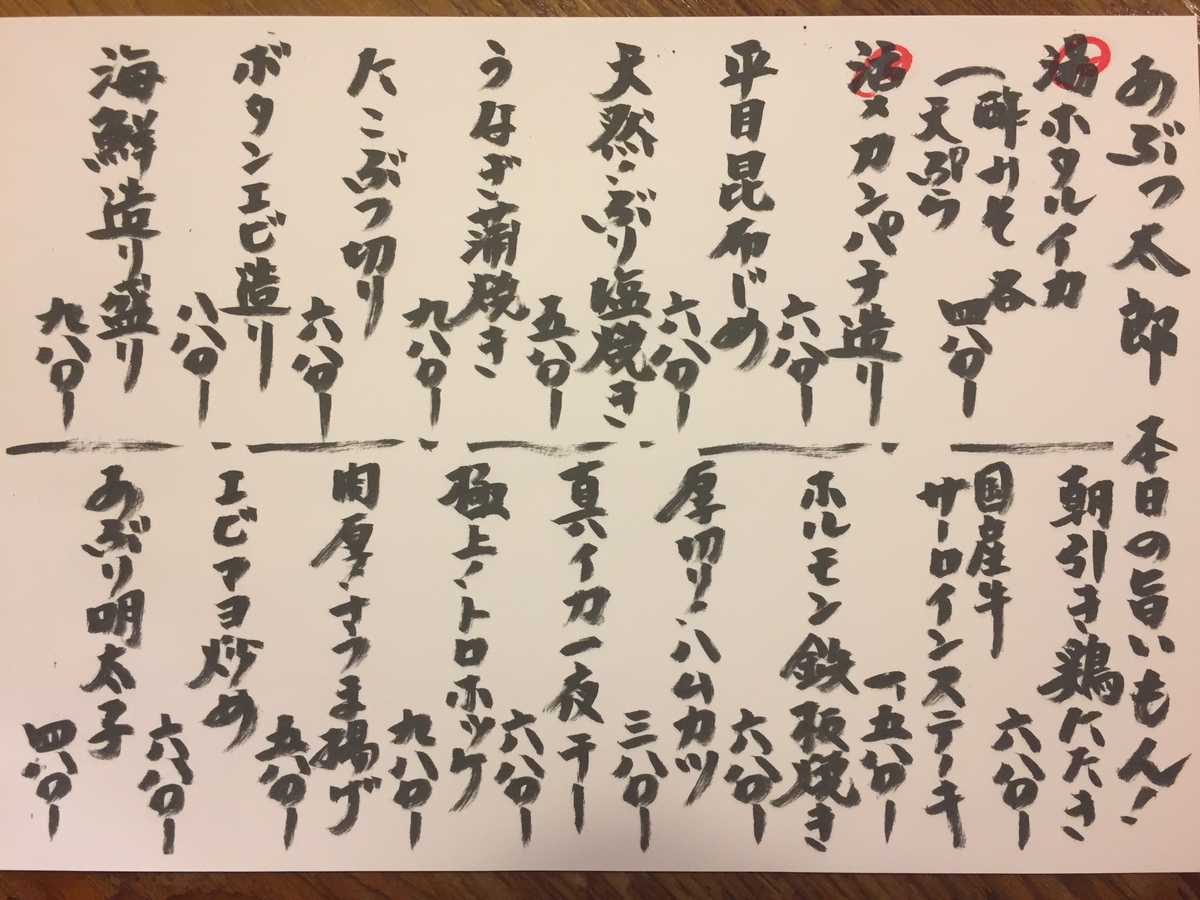 あぶつ太郎 本日の旨いもん!
湯ホタルイカ
(酢みそ 各
天ぷら 四八〇ー
活〆カンパチ造り
六八〇ー
平目昆布じめ
六八〇ー
天然ぶり塩焼き
五八〇ー
うなぎ蒲焼き
九八〇ー
たこぶつ切り
六八〇ー
ボタンエビ造り
八八〇ー
海鮮造り盛り
九八〇ー
朝引き鶏たたき
六八〇ー
国産牛
サーロインステーキ
一、五八〇ー
ホルモン鉄板焼き
六八〇ー
厚切りハムカツ
三八〇ー
真イカ一夜干し
六八〇ー
極上トロホッケ
九八〇ー
肉厚さつま揚げ
五八〇ー
エビマヨ炒め
六八〇ー
あぶり明太子
四八〇ー